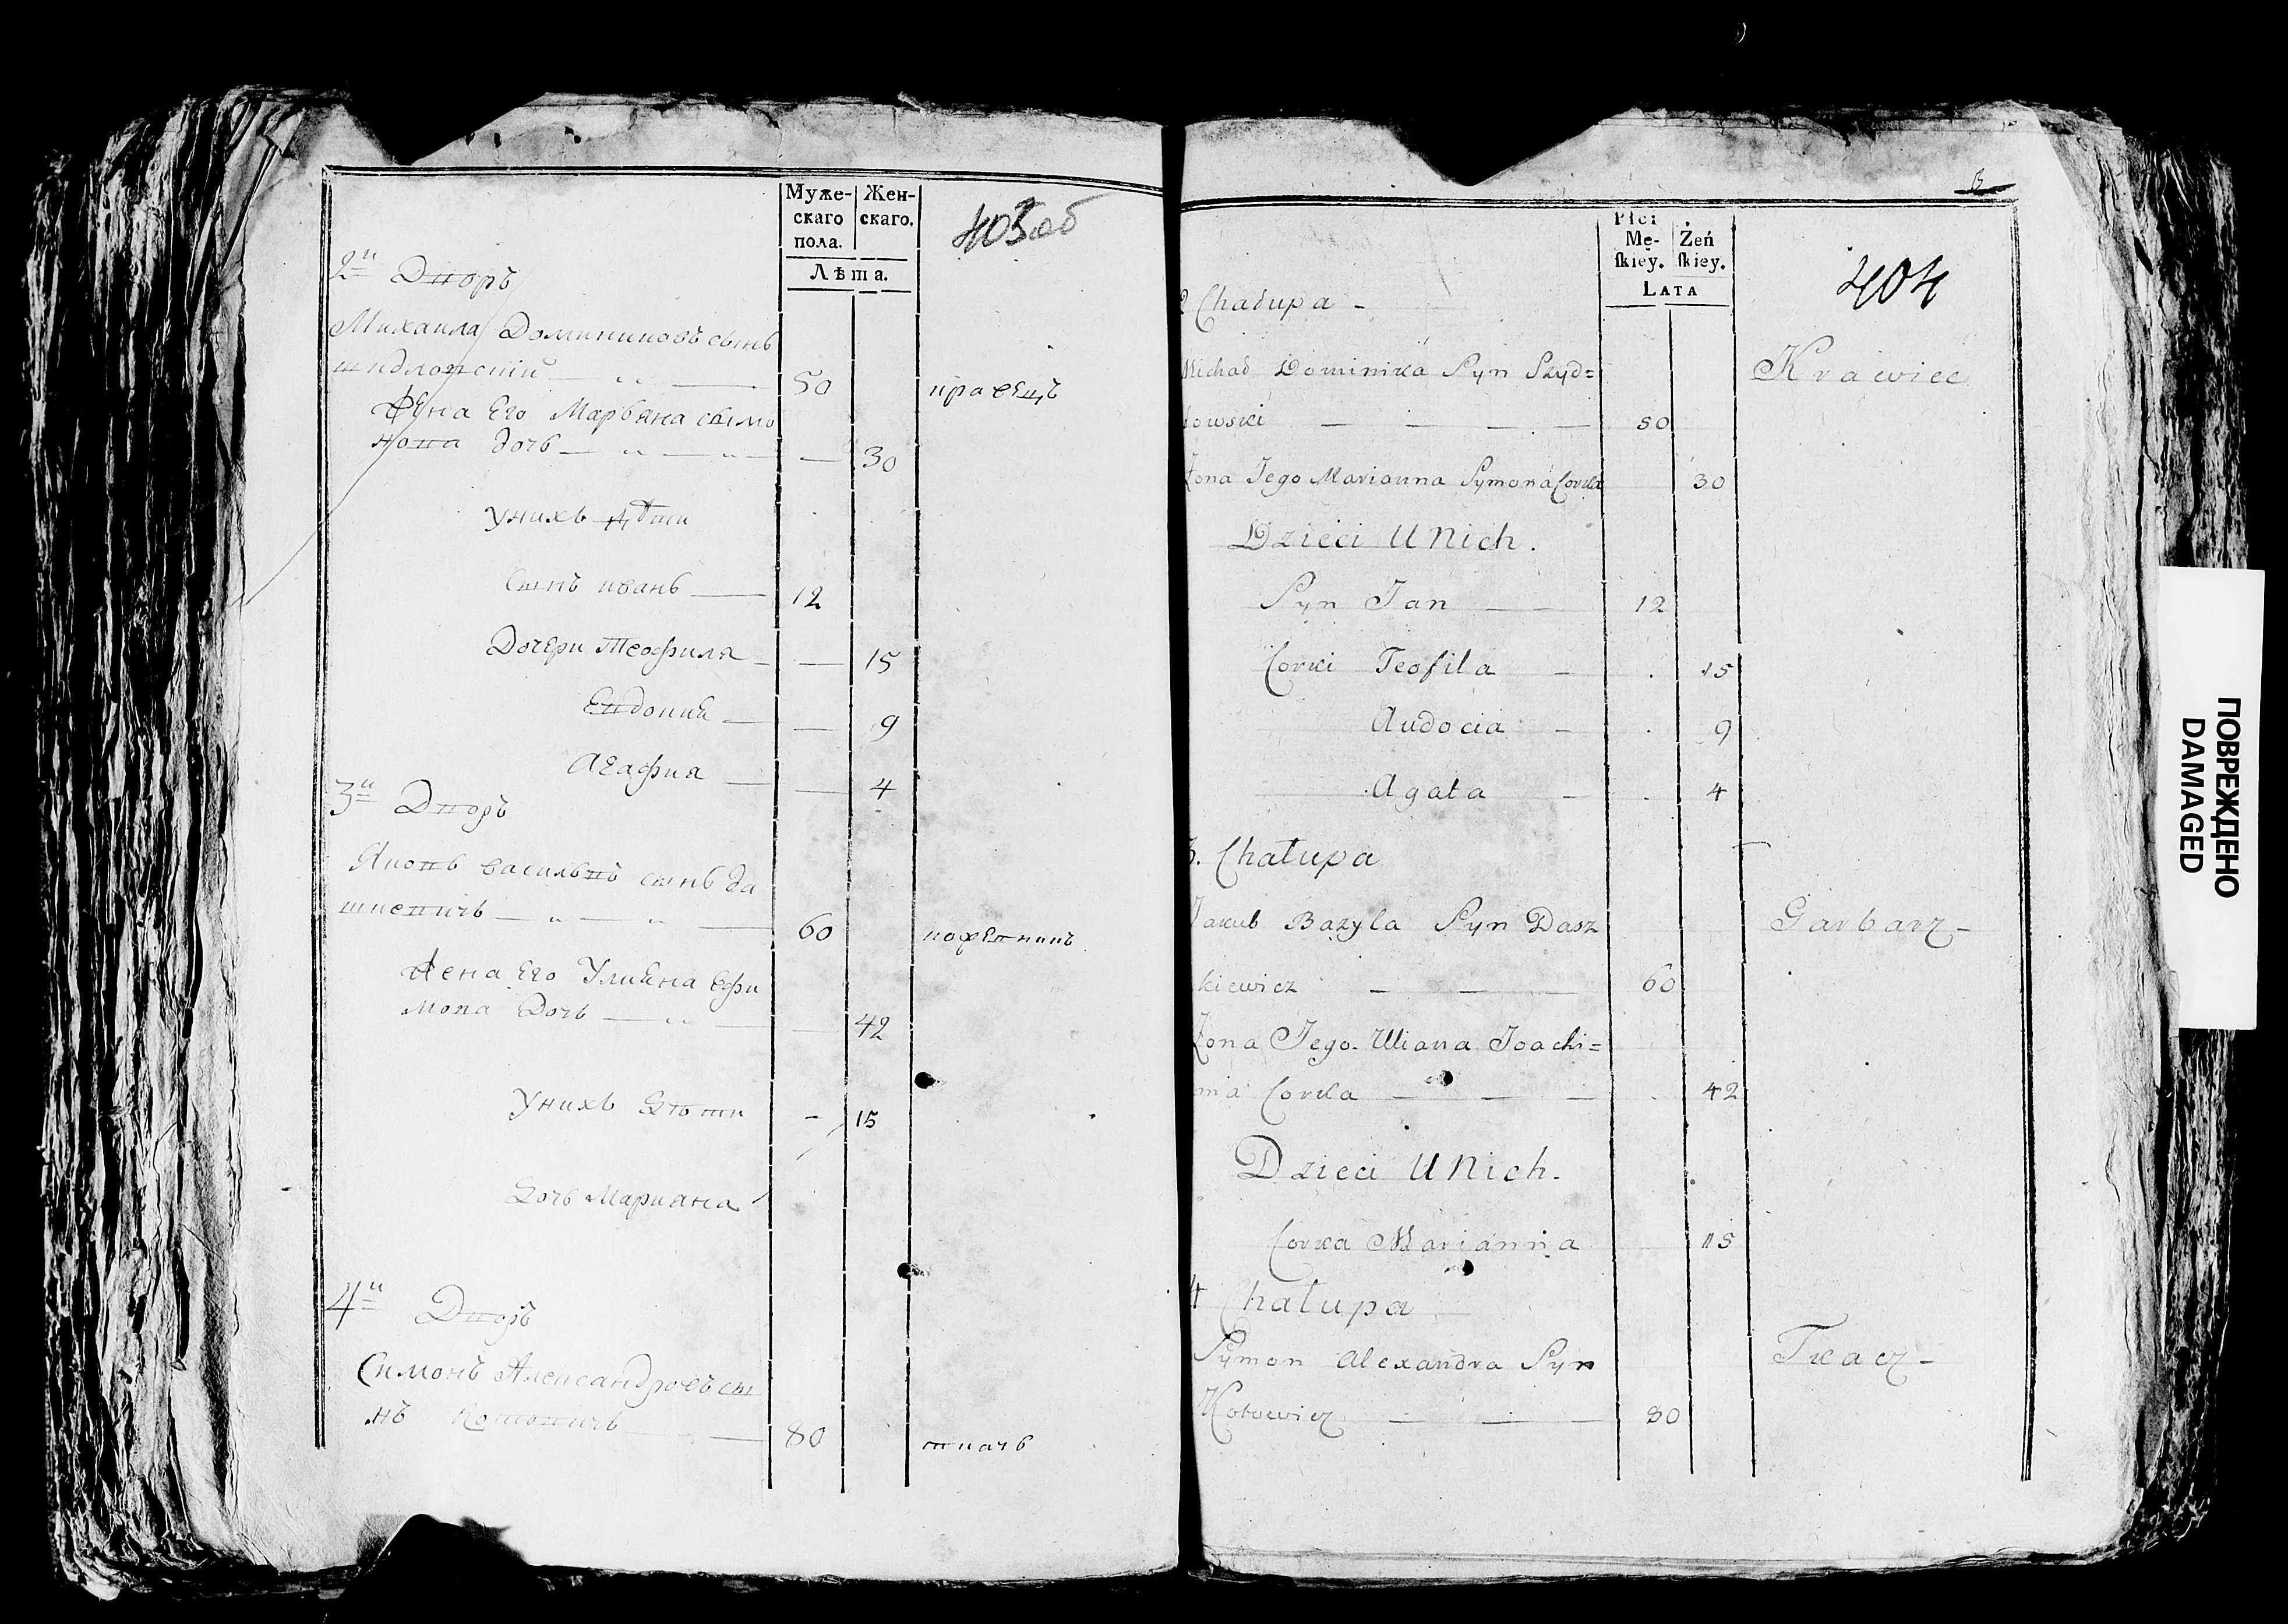 Муже-
скаго
пола.
Жен-
скаго.
Лѣта.
403об
2й Дворъ
Михаила Доминиковъ сынъ
шидловский — „ — 50 кравецъ
Жена Его Марьяна сымо
нова дочь — „ — „ — — 30
Унихъ дѣти
Сынъ иванъ — 12
Дочери Теофиля — — 15
Евдокия — — 9
Агафия — — 4
3й Дворъ
Яковъ васильвъ сынъ да
шкевичь — „ — „ — 60 кожевникъ
Жена Его Улияна Ефи
мова Дочь — „ — — 42
Унихъ Дѣти - 15
Дочь Марияна
4й Дворъ
Симонъ Александровъ сы
нъ Котовичъ — 80 ткачъ
Płci
Mę-
ſkiey.
Żeń
ſkiey.
LATA
404
2 Chałupa -
Michał Dominika Syn Szyd=
łowski — — — — 50
Krawiec
Żona Jego Marianna Symona Corka 30
Dzieci U Nich.
Syn Jan — 12
Corki Teofila — . 15
Audocia — . 9
Agata — . 4
3. Chałupa
Jakub Bazyla Syn Dasz
Garbarz -
kiewicz — — 60
Żona Jego Uliana Joachi=
ma Corka — — — . 42
Dzieci U Nich.
Corka Marianna 15
4 Chałupa
Symon Alexandra Syn
Tkacz -
Kotowicz — — — 80
ПОВРЕЖДЕНО
DAMAGED